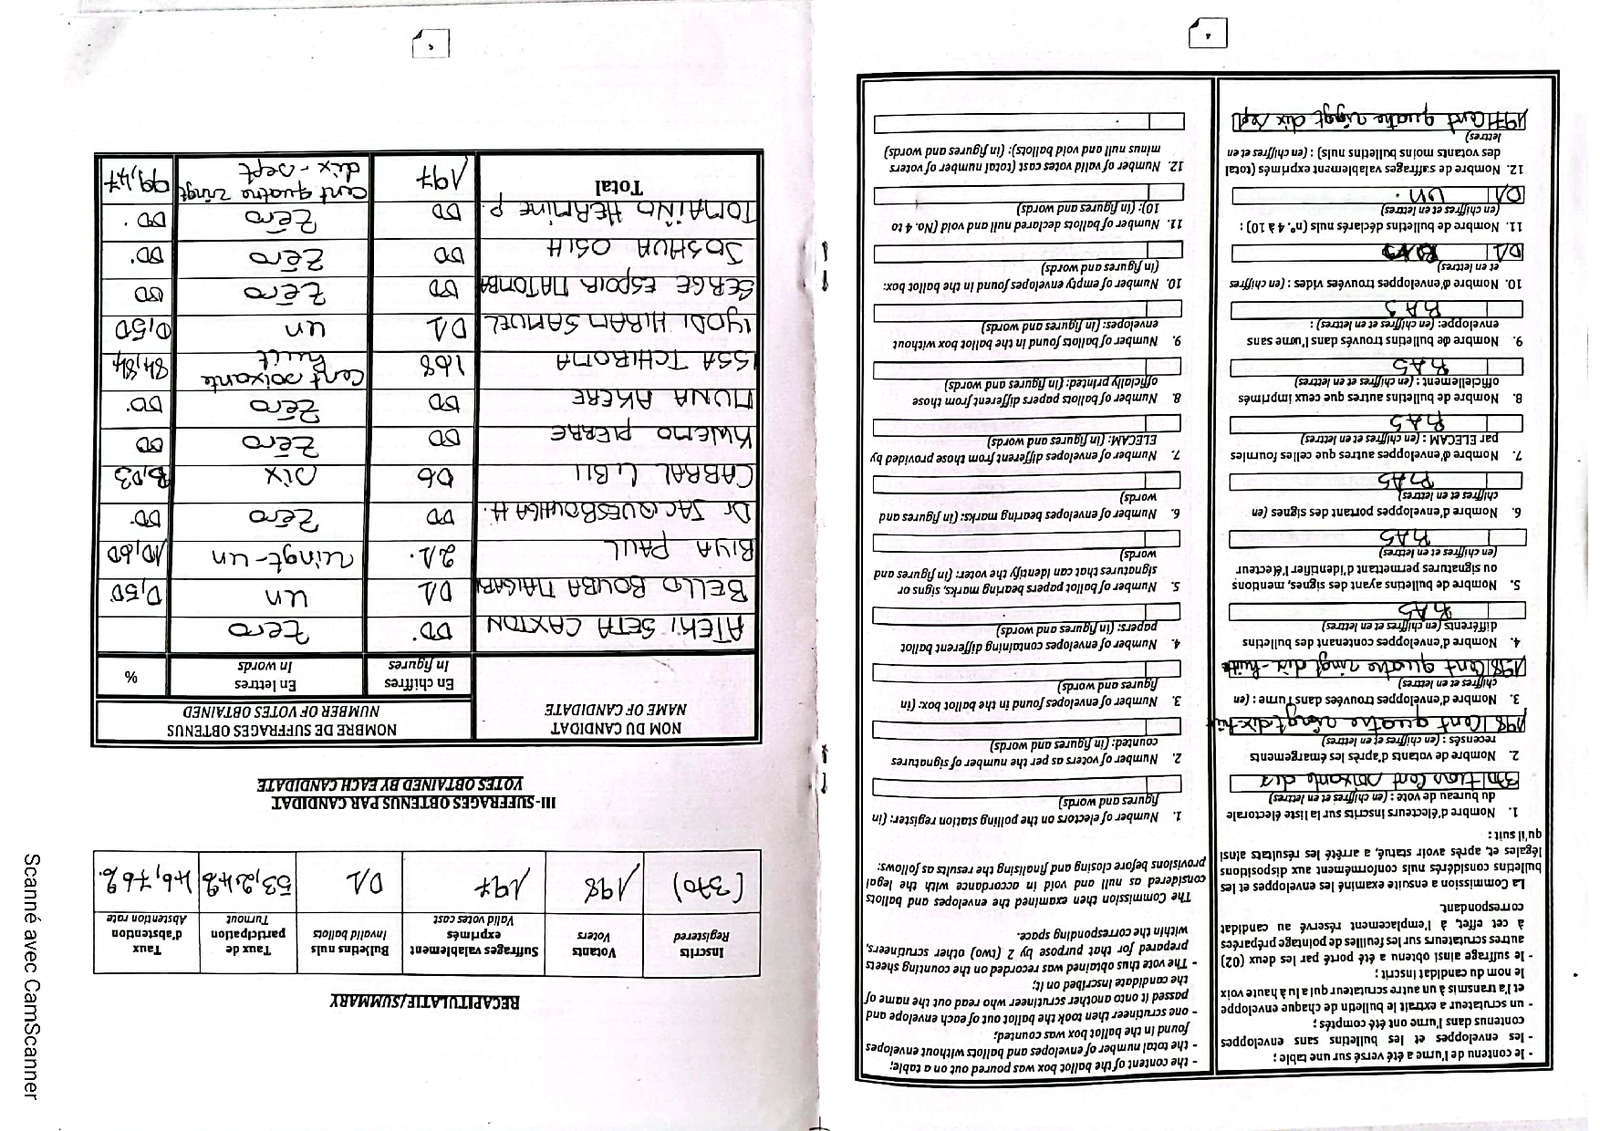 4
- le contenu de l'urne a été versé sur une table ;
- les enveloppes et les bulletins sans enveloppes contenus dans l'urne ont été comptés ;
- un scrutateur a extrait le bulletin de chaque enveloppe et l'a transmis à un autre scrutateur qui a lu à haute voix le nom du candidat inscrit ;
- le suffrage ainsi obtenu a été porté par les deux (02) autres scrutateurs sur les feuilles de pointage préparées à cet effet, à l'emplacement réservé au candidat correspondant.
La Commission a ensuite examiné les enveloppes et les bulletins considérés nuls conformément aux dispositions légales et, après avoir statué, a arrêté les résultats ainsi qu'il suit :
1. Nombre d'électeurs inscrits sur la liste électorale du bureau de vote : (en chiffres et en lettres)
370 trois cent soixante dix
2. Nombre de votants d'après les émargements recensés : (en chiffres et en lettres)
198 Cent quatre vingt dix-huit
3. Nombre d'enveloppes trouvées dans l'urne : (en chiffres et en lettres)
198 Cent quatre vingt dix-huit
4. Nombre d'enveloppes contenant des bulletins différents (en chiffres et en lettres)
RAS
5. Nombre de bulletins ayant des signes, mentions ou signatures permettant d'identifier l'électeur (en chiffres et en lettres)
RAS
6. Nombre d'enveloppes portant des signes (en chiffres et en lettres)
RAS
7. Nombre d'enveloppes autres que celles fournies par ELECAM : (en chiffres et en lettres)
RAS
8. Nombre de bulletins autres que ceux imprimés officiellement : (en chiffres et en lettres)
RAS
9. Nombre de bulletins trouvés dans l'urne sans enveloppe: (en chiffres et en lettres) :
RAS
10. Nombre d'enveloppes trouvées vides : (en chiffres et en lettres)
01
11. Nombre de bulletins déclarés nuls (n°. 4 à 10) : (en chiffres et en lettres)
01 un.
12. Nombre de suffrages valablement exprimés (total des votants moins bulletins nuls) : (en chiffres et en lettres)
197 Cent quatre vingt dix sept
- the content of the ballot box was poured out on a table;
- the total number of envelopes and ballots without envelopes found in the ballot box was counted;
- one scrutineer then took the ballot out of each envelope and passed it onto another scrutineer who read out the name of the candidate inscribed on it;
- The vote thus obtained was recorded on the counting sheets prepared for that purpose by 2 (two) other scrutineers, within the corresponding space.
The Commission then examined the envelopes and ballots considered as null and void in accordance with the legal provisions before closing and finalising the results as follows:
1. Number of electors on the polling station register: (in figures and words)
2. Number of voters as per the number of signatures counted: (in figures and words)
3. Number of envelopes found in the ballot box: (in figures and words)
4. Number of envelopes containing different ballot papers: (in figures and words)
5. Number of ballot papers bearing marks, signs or signatures that can identify the voter: (in figures and words)
6. Number of envelopes bearing marks: (in figures and words)
7. Number of envelopes different from those provided by ELECAM: (in figures and words)
8. Number of ballots papers different from those officially printed: (in figures and words)
9. Number of ballots found in the ballot box without envelopes: (in figures and words)
10. Number of empty envelopes found in the ballot box: (in figures and words)
11. Number of ballots declared null and void (No. 4 to 10): (in figures and words)
12. Number of valid votes cast (total number of voters minus null and void ballots): (in figures and words)
5
RECAPITULATIF/SUMMARY
Inscrits Registered | Votants Voters | Suffrages valablement exprimés Valid votes cast | Bulletins nuls Invalid ballots | Taux de participation Turnout | Taux d'abstention Abstention rate
(370) | 198 | 197 | 01 | 53,24% | 46,76%.
III- SUFFRAGES OBTENUS PAR CANDIDAT
VOTES OBTAINED BY EACH CANDIDATE
NOM DU CANDIDAT NAME OF CANDIDATE | NOMBRE DE SUFFRAGES OBTENUS NUMBER OF VOTES OBTAINED
En chiffres In figures | En lettres In words | %
ATEKI SETA CAXTON | 00. | Zéro
BELLO BOUBA MAIGARI | 01 | un | 0,50
BIYA PAUL | 21. | vingt-un | 10,60
Dr JACQUES BOUHGA H. | 00 | Zéro | 00.
CABRAL LIBII | 06 | six | 3,03
KWEMO PIERRE | 00 | Zéro | 00
MUNA AKERE | 00 | Zéro | 00.
ISSA TCHIROMA | 168 | Cent soixante huit | 84,84
IYODI HIRAM SAMUEL | 01 | un | 0,50
SERGE ESPOIR MATOMBA | 00 | Zéro | 00
JOSHUA OSIH | 00 | Zéro | 00.
TOMAÏNO HERMINE P. | 00 | Zéro | 00.
Total | 197 | Cent quatre vingt dix-sept | 99,47
Scanné avec CamScanner